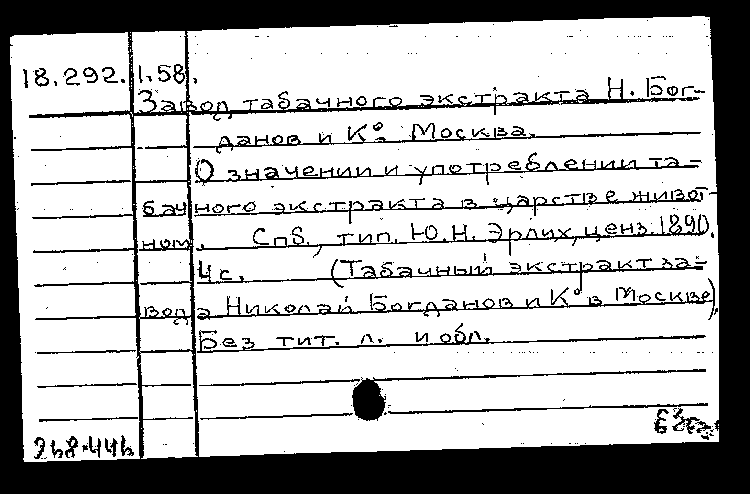 18.292.1.58.
Завод табачного экстракта Н. Бог-
данов и К°. Москва.
О значении и употреблении та-
бачного экстракта в царстве живот-
ном. Спб., тип. Ю.Н. Эрлих, ценз. 1890.
4 с. (Табачный экстракт за-
вода Николай Богданов и К° в Москве).
Без тит. л. и обл.